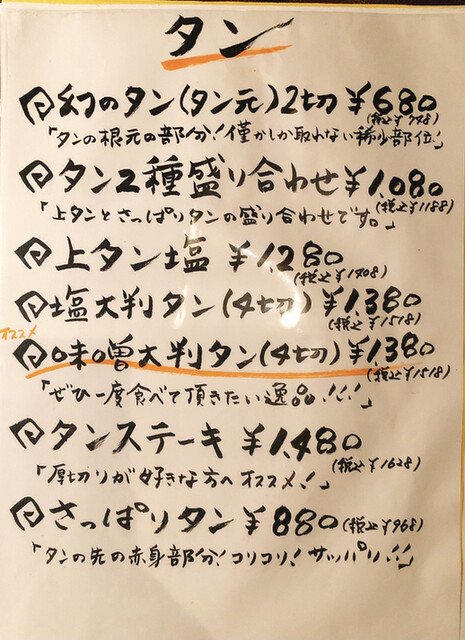 タン
幻のタン(タン元)2切 ¥680
(税込¥748)
「タンの根元の部分!僅かしか取れない稀少部位!」
タン2種盛り合わせ¥1,080
(税込¥1188)
「上タンとさっぱりタンの盛り合わせです。」
上タン塩 ¥1,280
(税込¥1408)
塩大判タン(4切)¥1,380
(税込¥1518)
オススメ
味噌大判タン(4切)¥1,380
(税込¥1518)
「ぜひ一度食べて頂きたい逸品!!!」
タンステーキ ¥1,480
(税込¥1628)
「厚切りが好きな方へオススメ!」
さっぱりタン ¥880(税込¥968)
「タンの先の赤身部分!コリコリ!サッパリ!!」